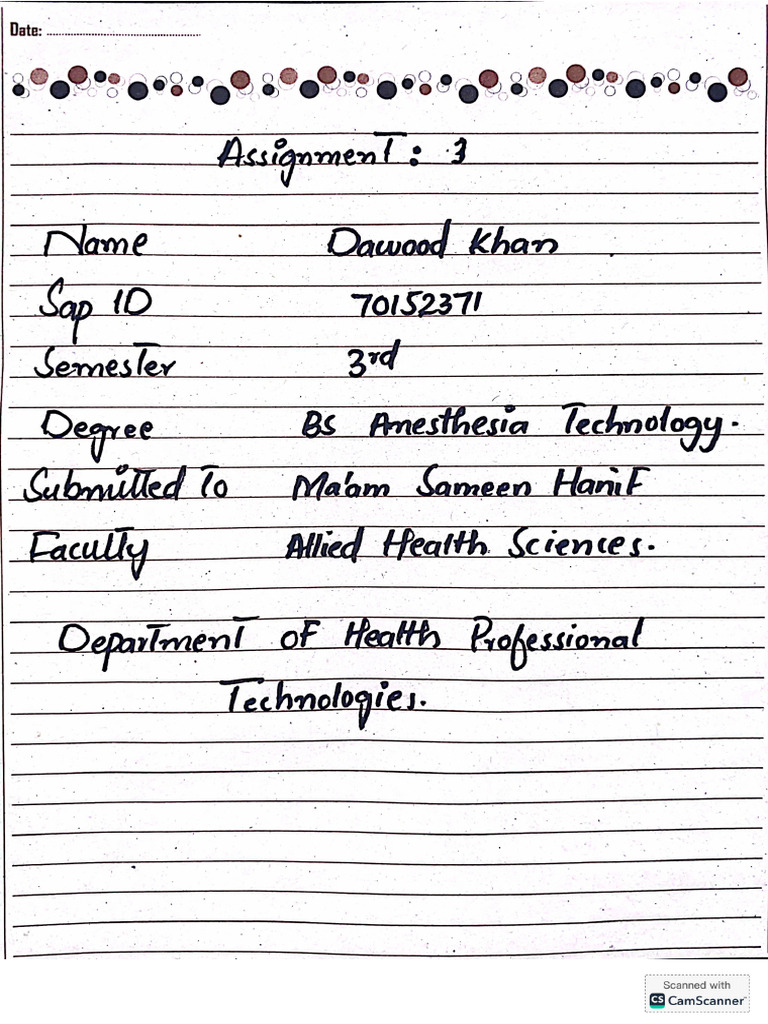 Date: ................................................
Assignment : 3
Name Dawood Khan
Sap ID 70152371
Semester 3rd
Degree Bs Anesthesia Technology.
Submitted To Ma'am Sameen Hanif
Faculty Allied Health Sciences.
Department of Health Professional
Technologies.
Scanned with
CS CamScanner